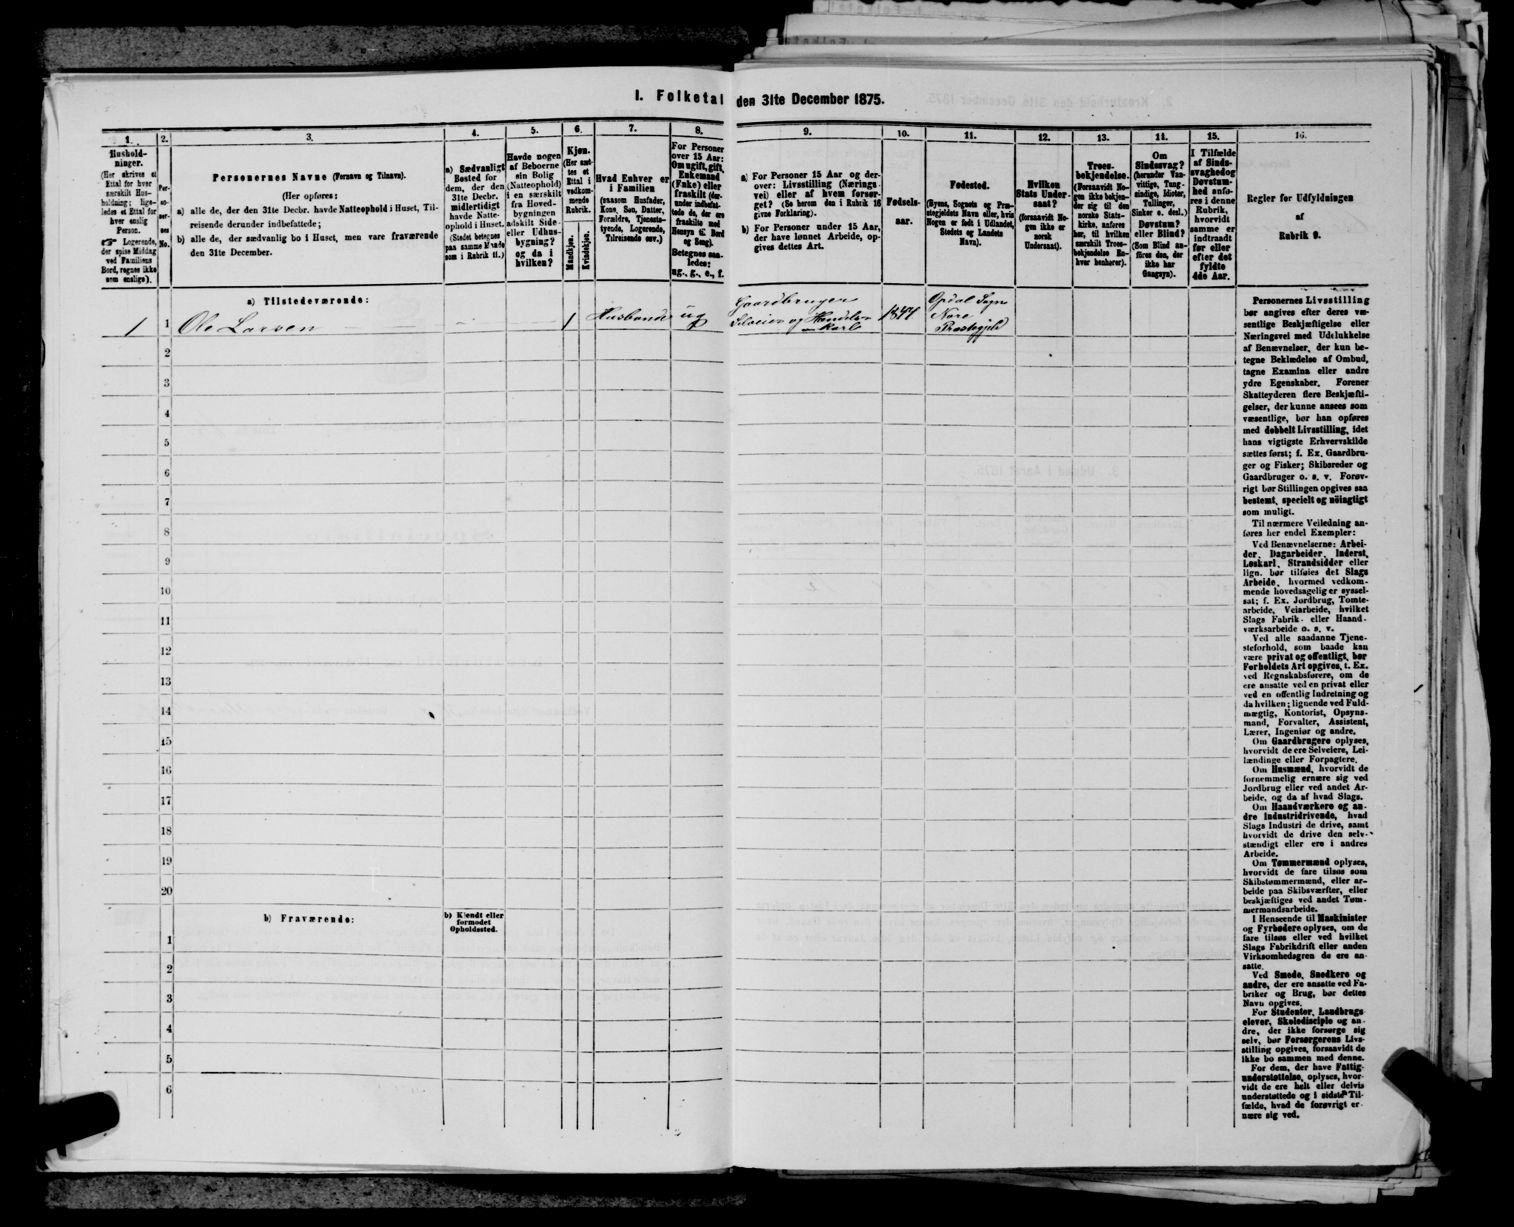 I. Folketal den 31te December 1875.
1. 2. 3. 4. 5. 6. 7. 8. 9. 10. 11. 12. 13. 14. 15. 16.
Hushold-
ninger.
(Her skrives et
Ettal for hver
særskilt Hus-
holdning; lige-
ledes et Ettal for
hver enslig
Person.
☞ Logerende,
der spise Middag
ved Familiens
Bord, regnes ikke
som enslige).
Per-
so-
ner-
nes
No.
Personernes Navne (Fornavn og Tilnavn).
(Her opføres:
a) alle de, der den 31te Decbr. havde Natteophold i Huset, Til-
reisende derunder indbefattede;
b) alle de, der sædvanlig bo i Huset, men vare fraværende
den 31te December.
a) Sædvanligt
Bosted for
dem, der den
31te Decbr.
midlertidigt
havde Natte-
ophold i Huset.
(Stedet betegnes
paa samme Maade
som i Rubrik 11.)
Havde nogen
af Beboerne
sin Bolig
(Natteophold)
i en særskilt
fra Hoved-
bygningen
adskilt Side-
eller Udhus-
bygning?
og da i
hvilken?
Kjøn.
(Her sæt-
tes et
Ettal i
vedkom-
mende
Rubrik.
Mandkjøn.
Kvindekjøn.
Hvad Enhver er
i Familien
(saasom Husfader,
Kone, Søn, Datter,
Forældre, Tjeneste-
tyende, Logerende,
Tilreisende osv.)
For Personer
over 15 Aar:
Om ugift, gift,
Enkemand
(Enke) eller
fraskilt (der-
under indbefat-
tede de, der ere
fraskilte med
Hensyn til Bord
og Seng).
Betegnes saa-
ledes:
ug., g., e., f.
a) For Personer 15 Aar og der-
over: Livsstilling (Nærings
vei) eller af hvem forsør-
get? (Se herom den i Rubrik 16
givne Forklaring).
b) For Personer under 15 Aar,
der have lønnet Arbeide, op-
gives dettes Art.
Fødsels-
aar.
Fødested.
(Byens, Sognets og Præ-
stegjeldets Navn eller, hvis
Nogen er født i Udlandet,
Stedets og Landets
Navn).
Hvilken
Stats Under-
saat?
(forsaavidt No-
gen ikke er
norsk
Undersaat).
Troes-
bekjendelse.
(Forsaavidt No-
gen ikke bekjen-
der sig til den
norske Stats-
kirke, anføres
her, til hvilken
særskilt Troes-
bekjendelse En-
hver henhører).
Om
Sindssvag?
(herunder Van-
vittige, Tung-
sindige, Idioter,
Tullinger,
Sinker o. desl.)
Døvstum?
eller Blind?
(Som Blind an-
føres den, der
ikke har
Gangsyn).
I Tilfælde
af Sinds-
svaghed og
Døvstum-
hed anfø-
res i denne
Rubrik,
hvorvidt
samme er
indtraadt
før eller
efter det
fyldte
4de Aar.
Regler for Udfyldningen
af
Rubrik 9.
a) Tilstedeværende:
1 1 Ole Larsen 1 Husbonde ug Gaardbruger Selveier og Handels-karl 1844 Opdal Sogn Nore Præstegjeld
2
3
4
5
6
7
8
9
10
11
12
13
14
15
16
17
18
19
20
b) Fraværende:
b) Kjendt eller
formodet
Opholdssted.
1
2
3
4
5
6
Personernes Livsstilling
bør angives efter deres væ-
sentlige Beskjæftigelse eller
Næringsvei med Udelukkelse
af Benævnelser, der kun be-
tegne Beklædelse af Ombud,
tagne Examina eller andre
ydre Egenskaber. Forener
Skatteyderen flere Beskjæfti-
gelser, der kunne ansees som
væsentlige, bør han opføres
med dobbelt Livsstilling, idet
hans vigtigste Erhvervskilde
sættes først; f. Ex. Gaardbru-
ger og Fisker; Skibsreder og
Gaardbruger o. s. v. Forøv-
rigt bør Stillingen opgives saa
bestemt, specielt og nöiagtigt
som muligt.
Til nærmere Veiledning an-
føres her endel Exempler:
Ved Benævnelserne: Arbei-
der, Dagarbeider, Inderst,
Løskarl, Strandsidder eller
lign. bør tilføies det Slags
Arbeide, hvormed vedkom-
mende hovedsagelig er syssel-
sat; f. Ex. Jordbrug, Tomte-
arbeide, Veiarbeide, hvilket
Slags Fabrik- eller Haand-
værksarbeide o. s. v.
Ved alle saadanne Tjene-
steforhold, som baade kan
være privat og offentligt, bør
Forholdets Art opgives, t. Ex.
ved Regnskabsførere, om de
ere ansatte ved en privat eller
ved en offentlig Indretning og
da hvilken; lignende ved Fuld-
mægtig, Kontorist, Opsyns-
mand, Forvalter, Assistent,
Lærer, Ingeniør og andre.
Om Gaardbrugere oplyses,
hvorvidt de ere Selveiere, Lei-
lændinge eller Forpagtere.
Om Husmænd, hvorvidt de
fornemmelig ernære sig ved
Jordbrug eller ved andet Ar-
beide, og da af hvad Slags.
Om Haandværkere og an-
dre Industridrivende, hvad
Slags Industri de drive, samt
hvorvidt de drive den selv-
stændigt eller ere i andres
Arbeide.
Om Tømmermænd oplyses,
hvorvidt de fare tilsøs som
Skibstømmermænd, eller ar-
beide paa Skibsværfter, eller
beskjæftiges ved andet Tøm-
mermandsarbeide.
I Henseende til Maskinister
og Fyrbødere oplyses, om de
fare tilsøs eller ved hvilket
Slags Fabrikdrift eller anden
Virksomhedsgren de ere an-
satte.
Ved Smede, Snedkere og
andre, der ere ansatte ved Fa-
briker og Brug, bør dettes
Navn opgives.
For Studenter, Landbrugs
elever, Skoledisciple og an-
dre, der ikke forsørge sig
selv, bør Forsørgerens Livs-
stilling opgives, forsaavidt de
ikke bo sammen med denne.
For dem, der have Fattig-
understøttelse, oplyses, hvor-
vidt de ere helt eller delvis
understøttede og i sidste Til-
fælde, hvad de forøvrigt er-
nære sig ved.